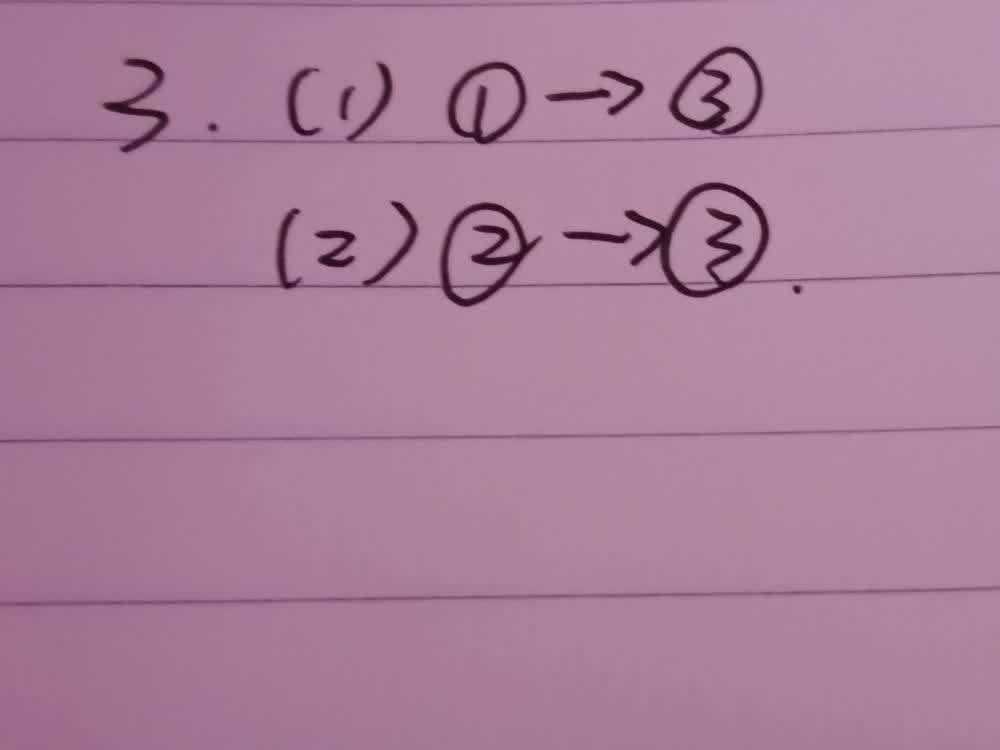 3. (1) ① → ③
(2) ② → ③.